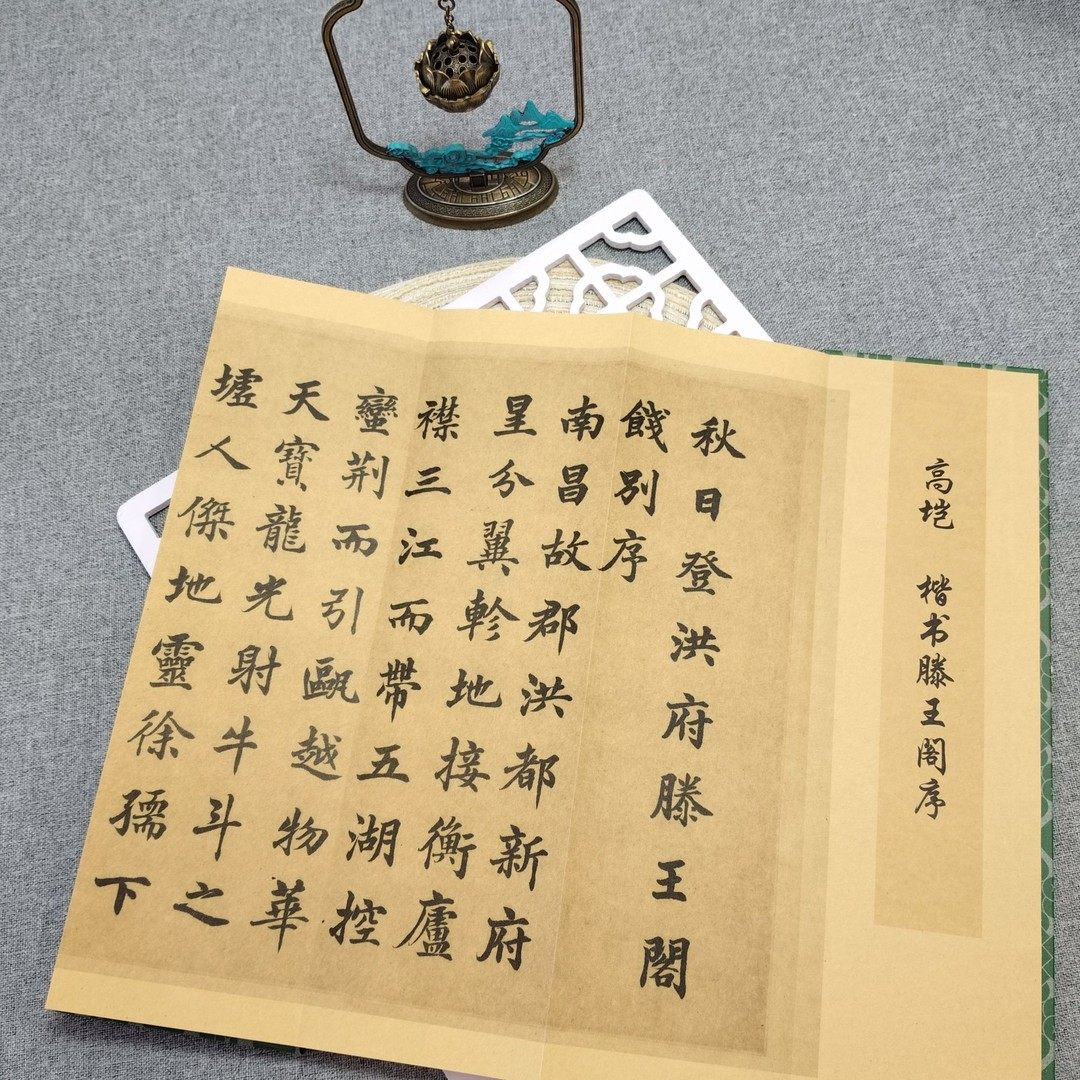 高垲 楷书滕王阁序
秋日登洪府滕王閣
餞別序
南昌故郡洪都新府
星分翼軫地接衡廬
襟三江而帶五湖控
蠻荆而引甌越物華
天寶龍光射牛斗之
墟人傑地靈徐孺下